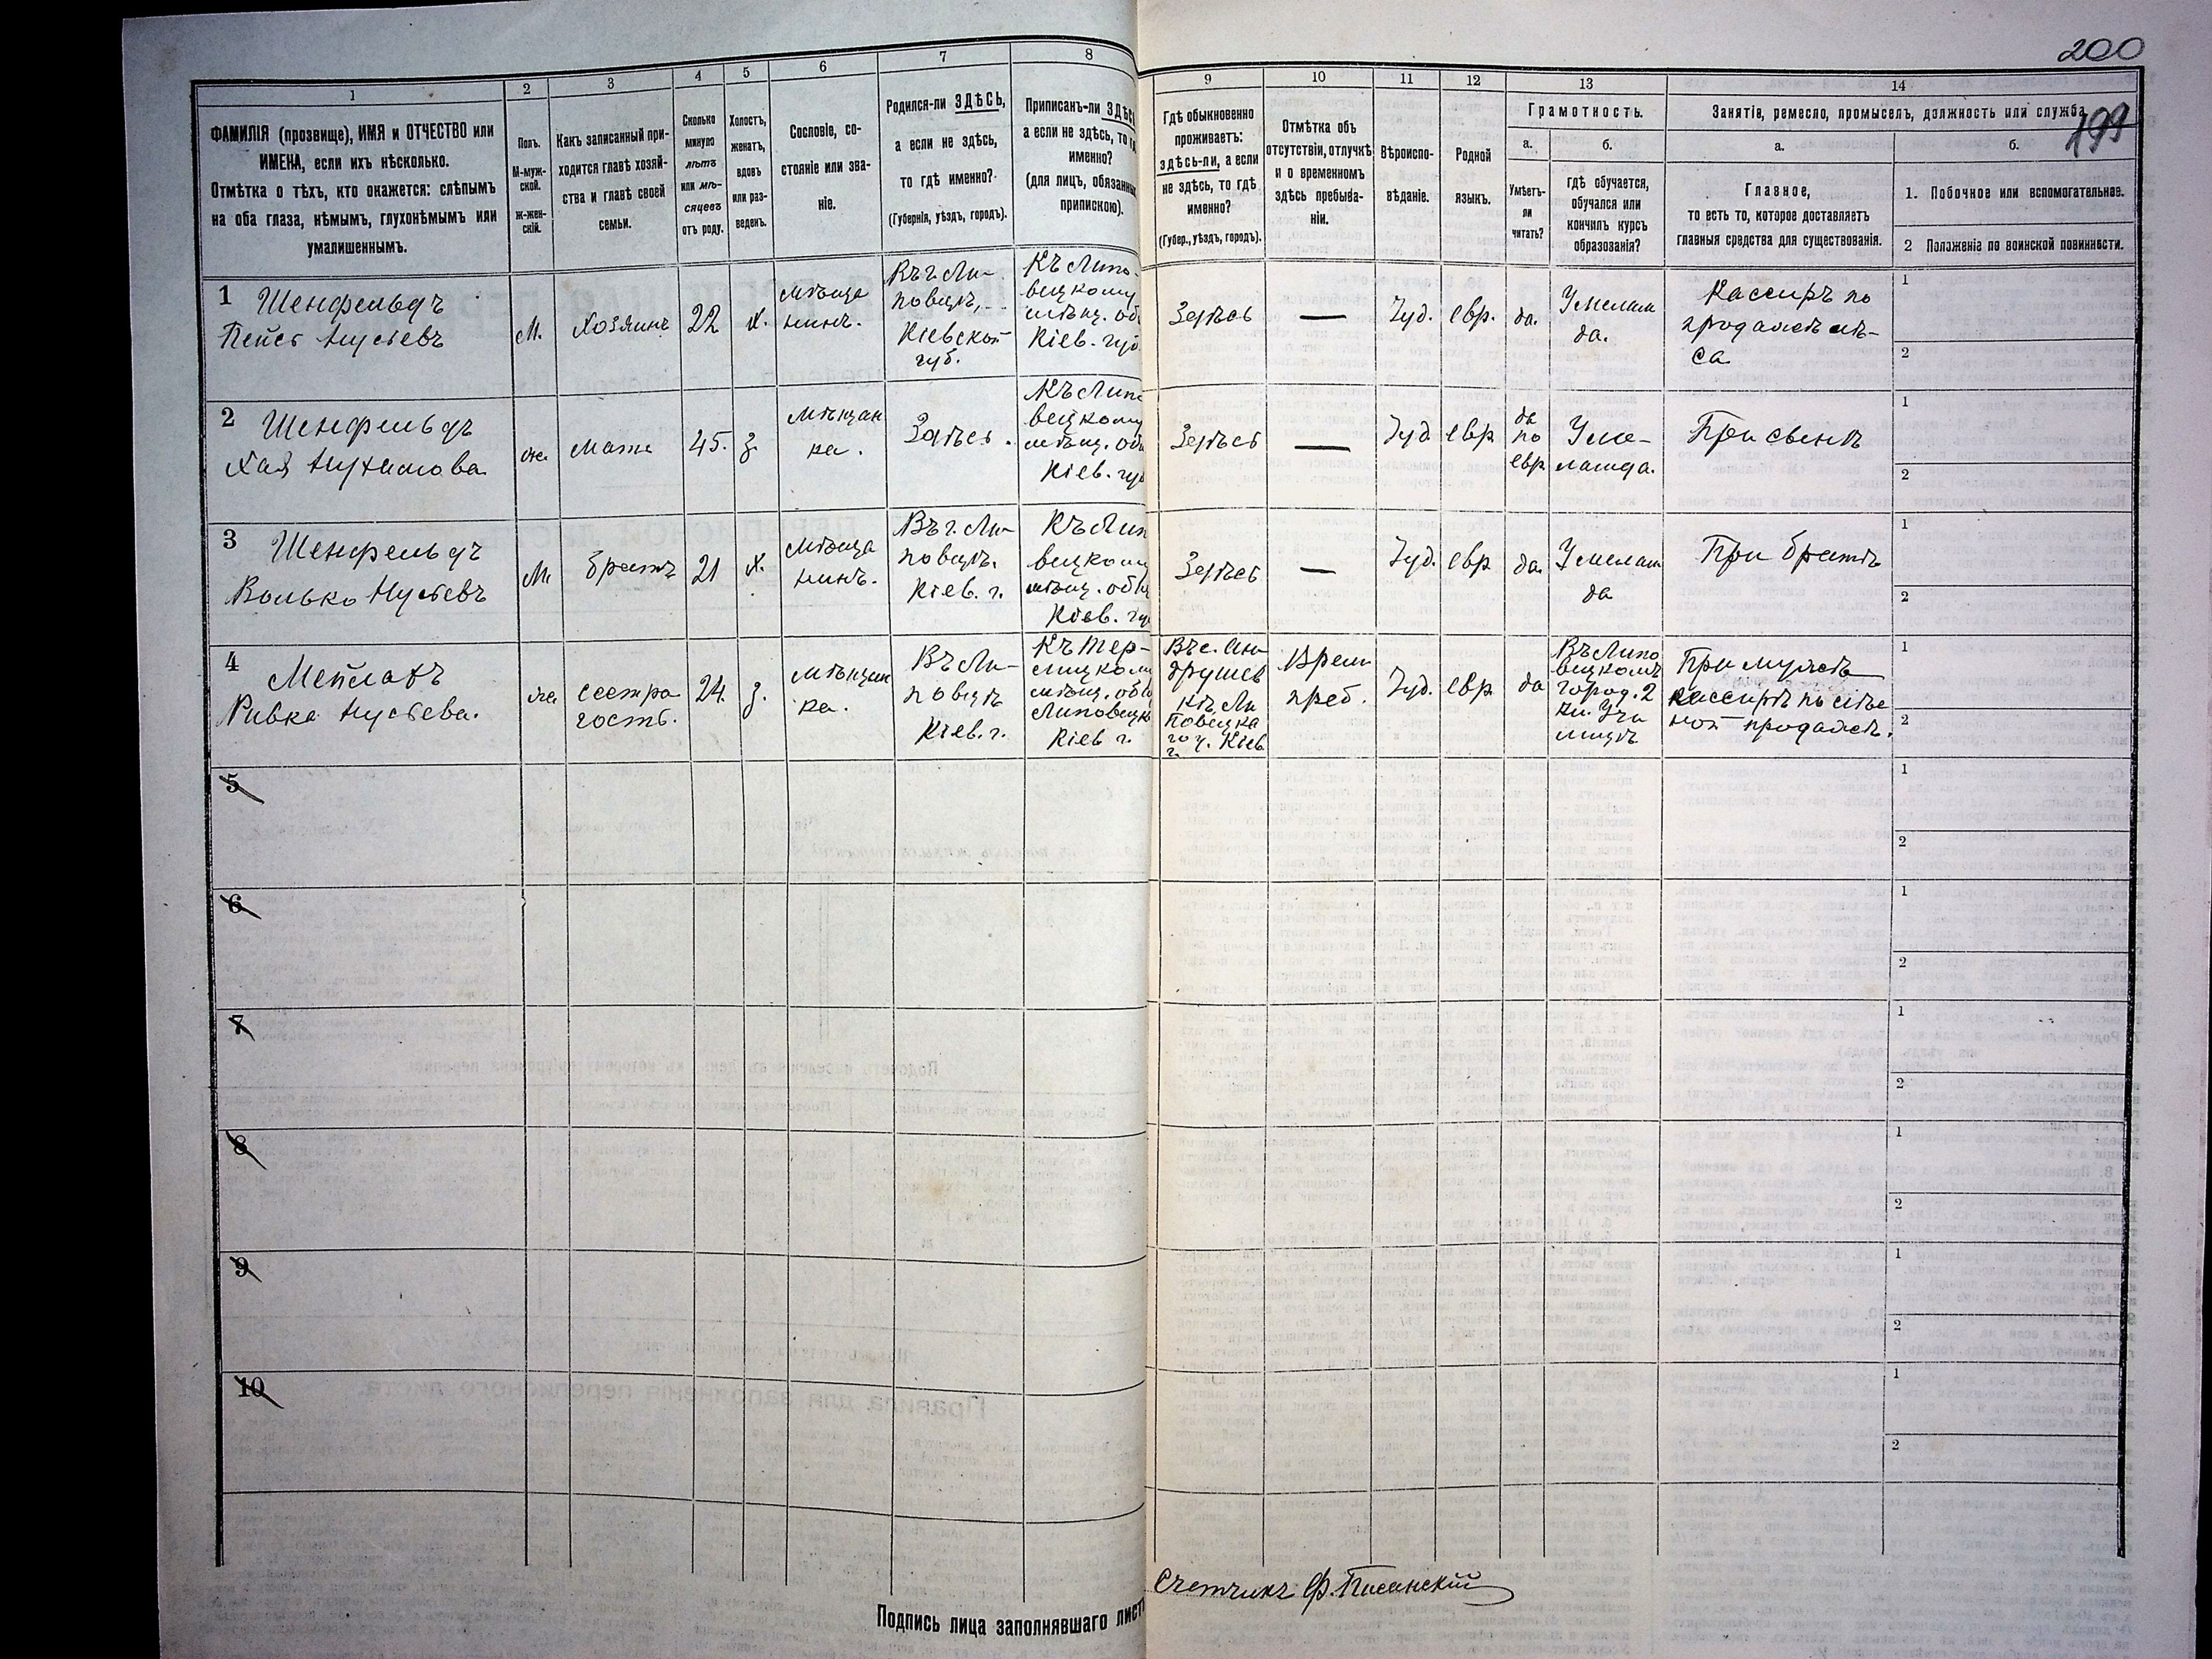 200
199
1
2
3
4
5
6
7
8
9
10
11
12
13
14
ФАМИЛІЯ (прозвище), ИМЯ и ОТЧЕСТВО или
ИМЕНА, если ихъ нѣсколько.
Отмѣтка о тѣхъ, кто окажется: слѣпымъ
на оба глаза, нѣмымъ, глухонѣмымъ или
умалишеннымъ.
Полъ.
М-муж-
ской.
ж-жен-
скій.
Какъ записанный при-
ходится главѣ хозяй-
ства и главѣ своей
семьи.
Сколько
минуло
лѣтъ
или мѣ-
сяцевъ
отъ роду.
Холостъ,
женатъ,
вдовъ
или раз-
веденъ.
Сословіе, со-
стояніе или зва-
ніе.
Родился-ли ЗДѢСЬ,
а если не здѣсь,
то гдѣ именно?
(Губернія, уѣздъ, городъ).
Приписанъ-ли ЗДѢСЬ
а если не здѣсь, то
именно?
(для лицъ, обязанн
припискою).
Гдѣ обыкновенно
проживаетъ:
здѣсь-ли, а если
не здѣсь, то гдѣ
именно?
(Губер., уѣздъ, городъ).
Отмѣтка объ
отсутствіи, отлучкѣ
и о временномъ
здѣсь пребыва-
ніи.
Вѣроиспо-
вѣданіе.
Родной
языкъ.
Грамотность.
а.
Умѣетъ-
ли
читать?
б.
гдѣ обучается,
обучался или
кончилъ курсъ
образованія?
Занятіе, ремесло, промыселъ, должность или служба.
а.
Главное,
то есть то, которое доставляетъ
главныя средства для существованія.
б.
1. Побочное или вспомогательное.
2 Положеніе по воинской повинности.
1 Шенфельдъ
Пейсъ Нусьевъ
М.
Хозяинъ
22
Х.
Мѣща
нинъ.
Въ г. Ли-
повцѣ,
Кіевской
губ.
Къ Липо-
вецкому
мѣщ. об
Кіев. губ
Здѣсь
—
Іуд.
евр.
да.
Кассиръ по
продажѣ лѣ-
са
1
2
2 Шенфельдъ
Хая Нухимова
ж.
мать
45.
З.
Мѣщан
ка.
Здѣсь.
Къ Липо
вецкому
мѣщ. об
Кіев. губ
Здѣсь
—
Іуд
евр
да
по
евр
При сынѣ
1
2
3 Шенфельдъ
Волько Нусьевъ
М.
братъ
21
Х.
Мѣща
нинъ.
Въ г. Ли-
повцѣ.
Кіев. г.
Къ Лип
вецкому
мѣщ. общ
Кіев. гу
Здѣсь
—
Іуд.
евр
да.
При братѣ
1
2
4 Мейлахъ
Ривка Нусьева.
ж.
сестра
гость.
24.
З.
Мѣщан
ка.
Въ Ли-
повцѣ
Кіев. г.
мѣщ. общ
Липовецк
Кіев г.
Врем
преб.
Іуд.
евр
да
Въ Липо
вецкомъ
город. 2
кл. Учи
лищѣ
При мужѣ
кассирѣ по лѣс
ной продажѣ.
1
2
5
1
2
6
1
2
7
1
2
8
1
2
9
1
2
10
1
2
Счетчикъ Ф. Писанскій
Подпись лица заполнявшаго листъ